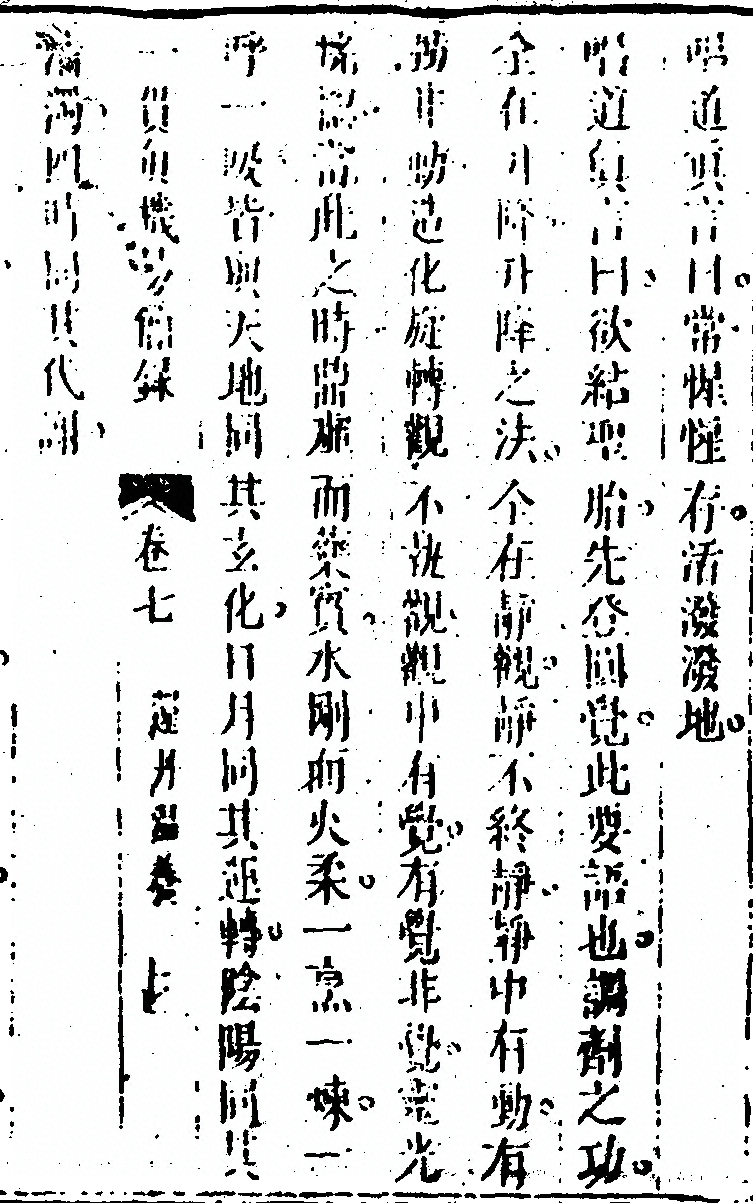 唱道真言曰常惺惺存活潑潑地
唱道真言曰欲結聖胎先登圓覺此要語也調劑之功
全在升降升降之法全在靜觀靜不終靜靜中有動有
動非動造化旋轉觀不執觀觀中有覺有覺非覺靈光
認當此之時鼎而藥實水剛而火柔一烹一煉一
呼一吸皆與天地同其玄化日月同其運轉陰陽同其
一貫真機易簡錄　卷七　還丹溫養　七
四時同其代謝